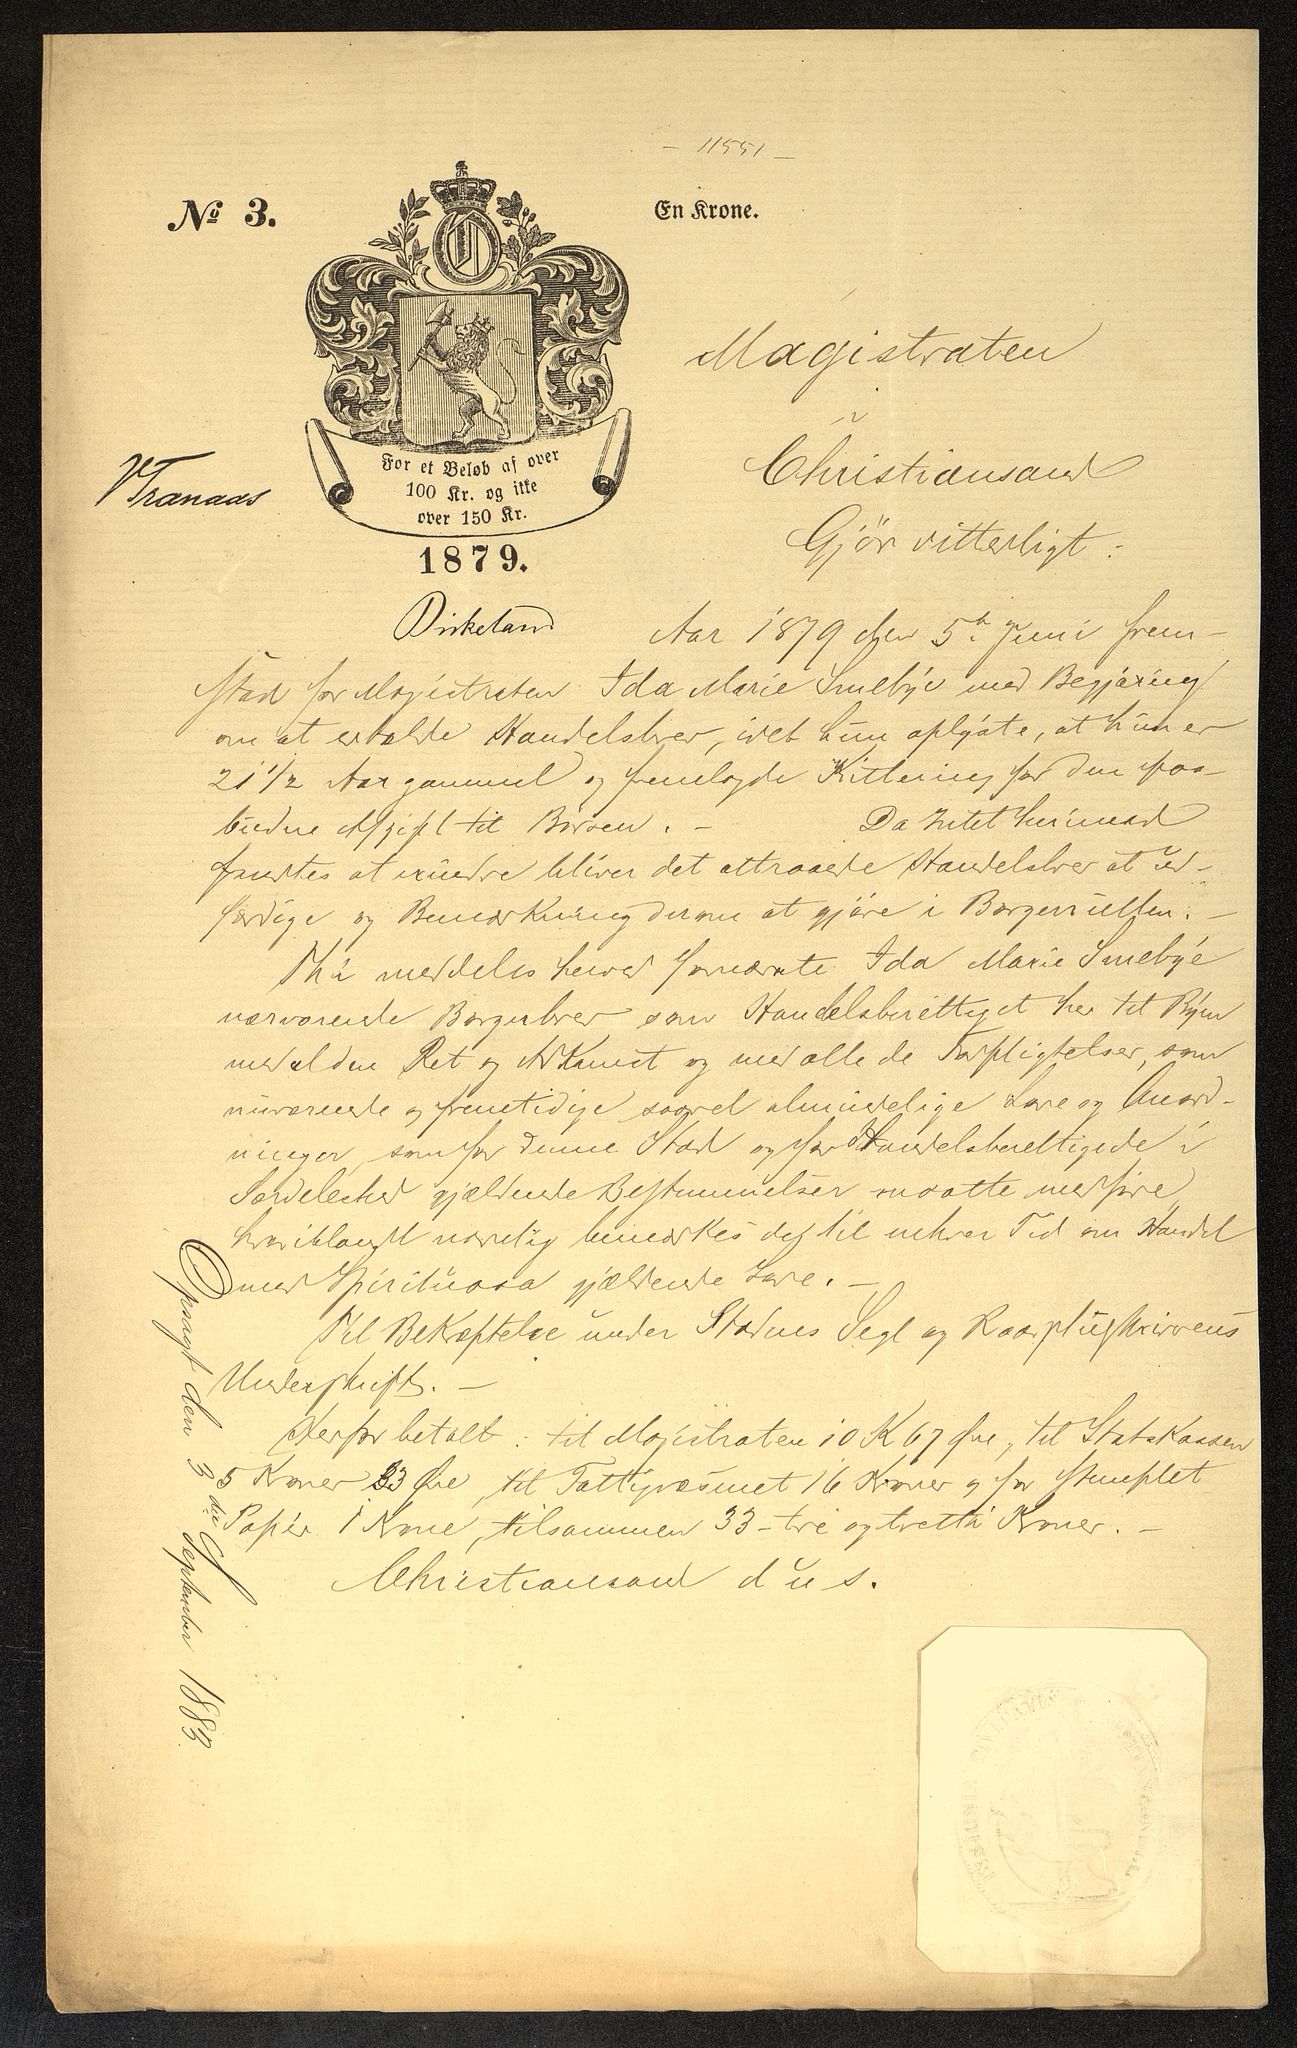 - 11551 -
No 3.
En Krone.
Magistraten
i
Christiansand
Gjör vitterligt:
For et Beløb af over
100 Kr. og ikke
over 150 Kr.
1879.
VTranaas
Birkeland
Aar 1879 den 5te Juni frem-
stod for Magistraten Ida Marie Smebye med Begjæring
om at erholde Handelsbrev, idet hun oplyste, at hun er
21 1/2 Aar gammel og fremlagde Kvittering for den paa-
budne Afgift til Børsen. - Da Intet herimod
fandtes at erindre bliver det attraaede Handelsbrev at ud-
færdige og Bemærkning derom at gjøre i Borgerrullen. -
Thi meddeles herved fornævnte Ida Marie Smebye
nærværende Borgerbrev som Handelsberettiget her til Byen
med al den Ret og Adkomst og med alle de Forpligtelser, som
nuværende og fremtidige saavel almindelige Love og Anord-
ninger, som for denne Stad og for Handelsberettigede i
Særdeleshed gjældende Bestemmelser maatte medføre,
hvoriblandt navnlig bemærkes de til enhver Tid om Handel
med Spirituosa gjældende Love. -
Til Bekræftelse under Stadens Segl og Raadstueskriverens
Underskrift. -
Herfor betalt: til Magistraten 10 K 67 Øre, til Statskassen
5 Kroner 33 Øre, til Fattigvæsnet 16 Kroner og for stemplet
Papir 1 Krone, tilsammen 33 - tre og tretti Kroner. -
Christiansand d u s.
Opsagt den 3die September 1883.